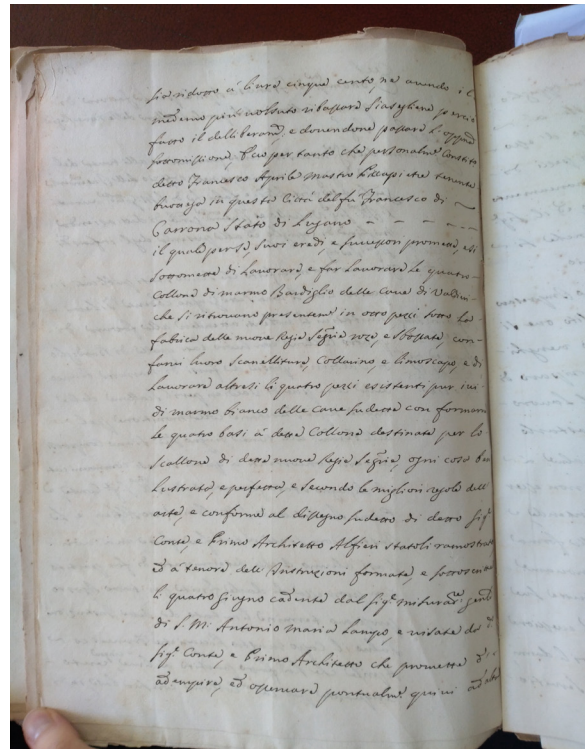 sia ridotto à livre cinque cento, ne avendo il
medemo più voluto ribassare siasegliene perciò
fatto il deliberam̃, e dovendone passare l'opp̃na
sottomissione, Ecco per tanto che personalm̃ Constito
detto Francesco Aprile Mastro
in questa Città del fu Francesco di
Carrona Stato di Lugano
il quale per sè, suoi eredi, e successori promette, e si
sottomette di Lavorare, e far Lavorare Le quattro
Collone di marmo Bardiglio delle Cave di Valdieri
che si ritrovano presentem̃ in otto pezzi sotto La
fabrica delle nuove Regie Segrie roze, e sbozzate, con
farvi Loro Scanelliture, Collarino, e limoscapo, e di
Lavorare altresì li quattro pezzi esistenti pur ivi
di marmo bianco delle Cave sudette con formarne
Le quatro basi à dette Collone destinate per lo
Scallone di dette nuove Regie Segrie, ogni cosa ben
Lustrate, e perfette, e secondo le migliori regole dell'
arte, e conforme al disegno sudetto di detto Sigr
Conte, e Primo Architetto Alfieri statoli rimostrato
ed à tenore delle Instruzioni formate, e sottoscritte
li quatro giugno cadente dal Sigr misuratre genle
di S. M. Antonio Maria Lampo, e visate da do
Sigr Conte, e Primo Architetto che promette
adempire, ed osservare pontualm̃ quivi